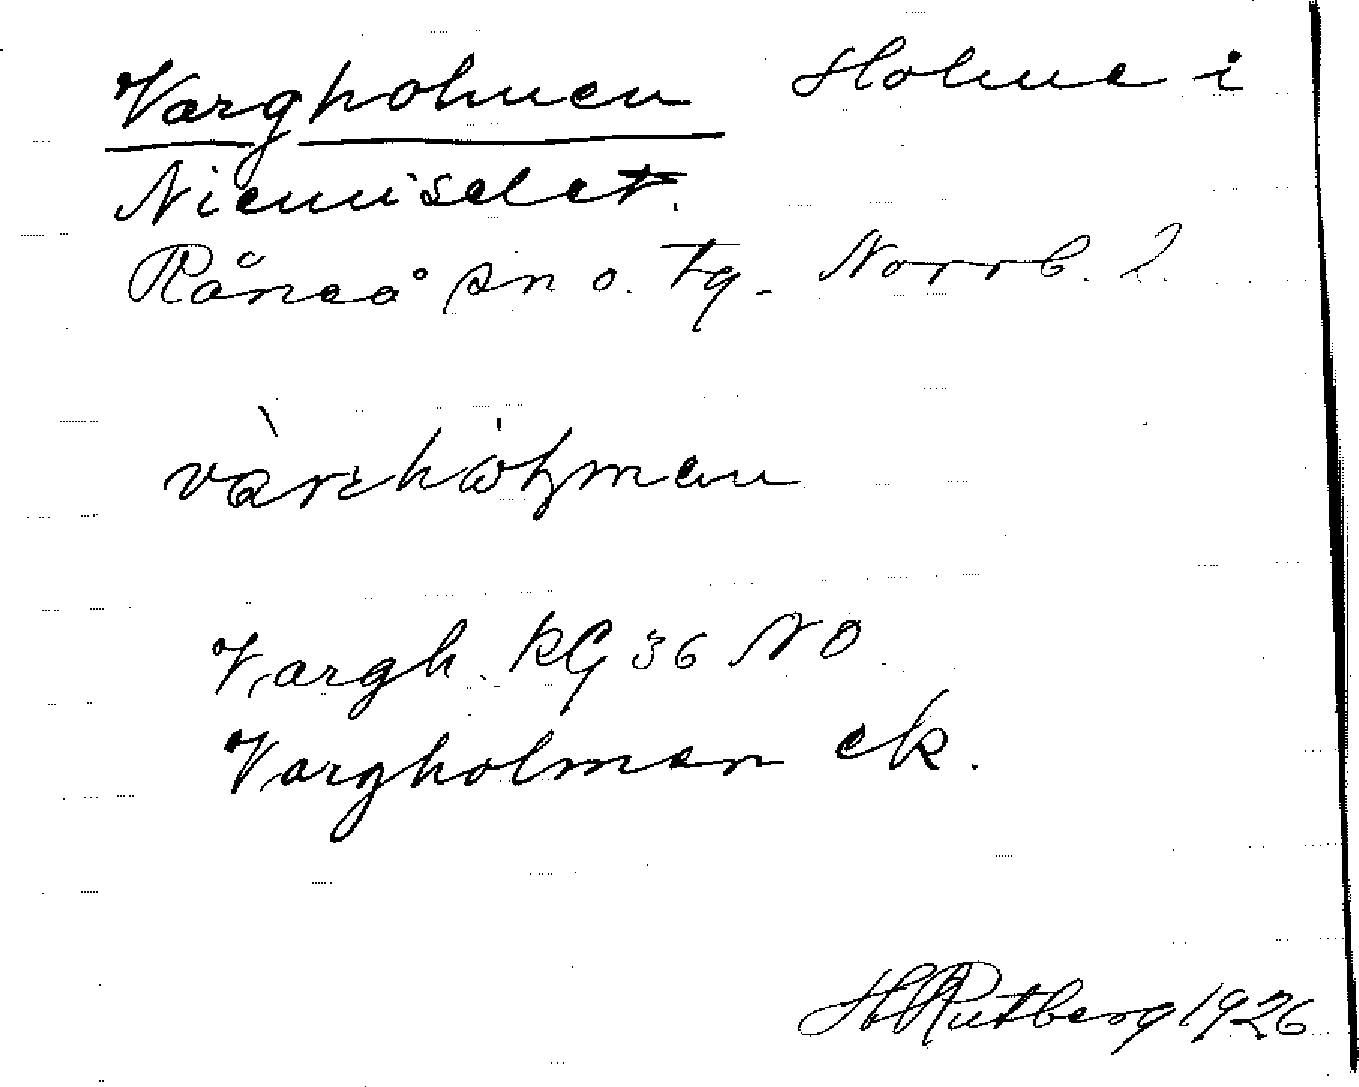 Vargholmen Holme i
Niemiselet.
Råneå sn o. tg. Norrb. l.
Vargh. RG 36 NO
Vargholman ek.
H Rutberg 1926